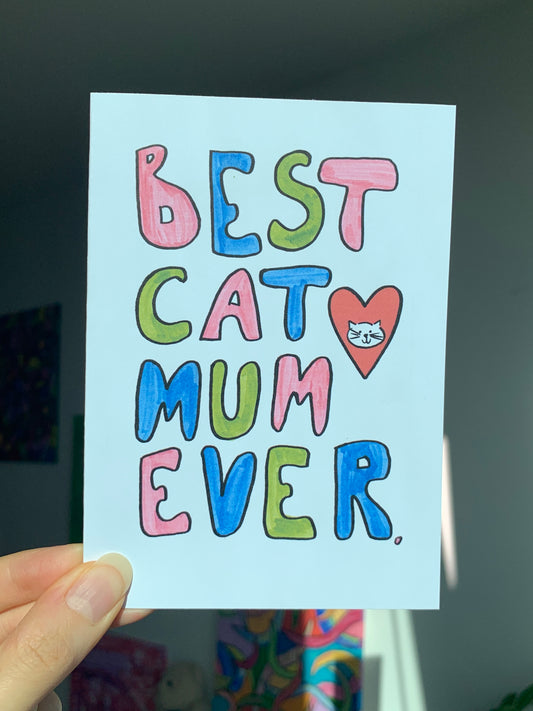 BEST
CAT
MUM
EVER.